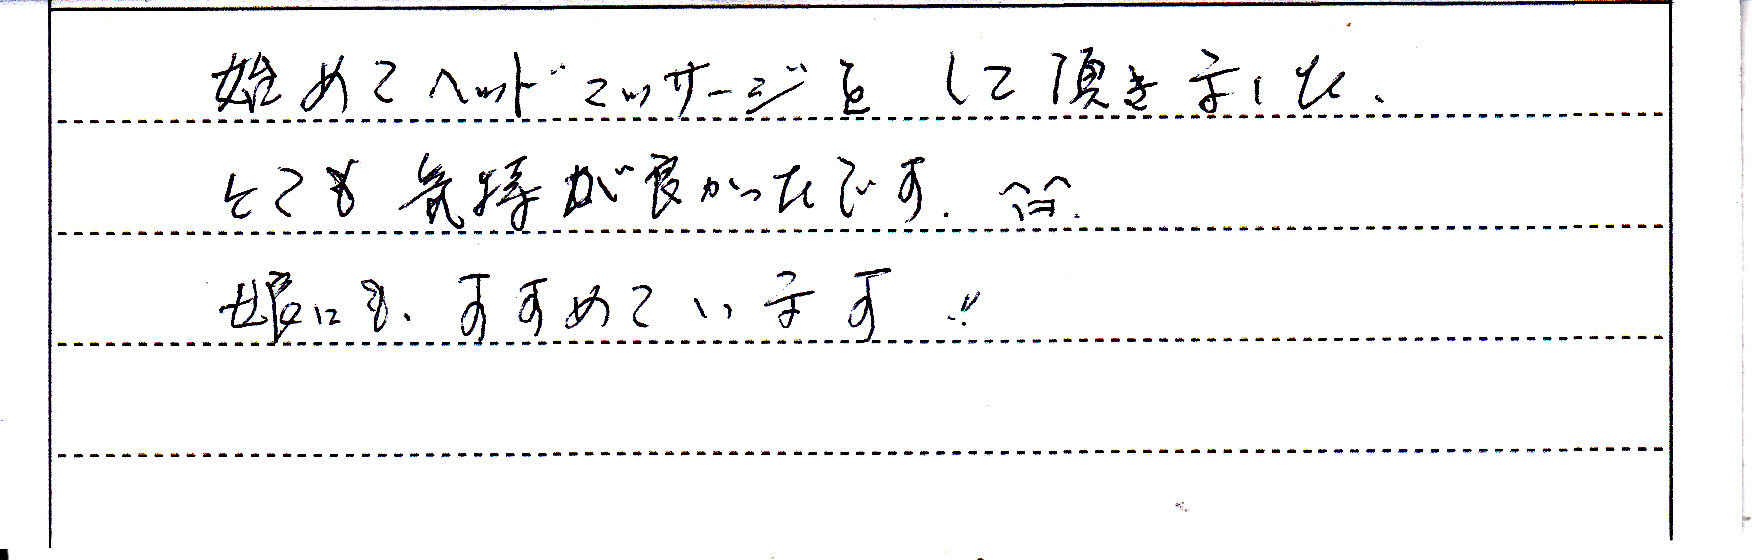 始めてヘッドマッサージをして頂きました.
とても気持が良かったです. ^=^.
娘にも、すすめています!!